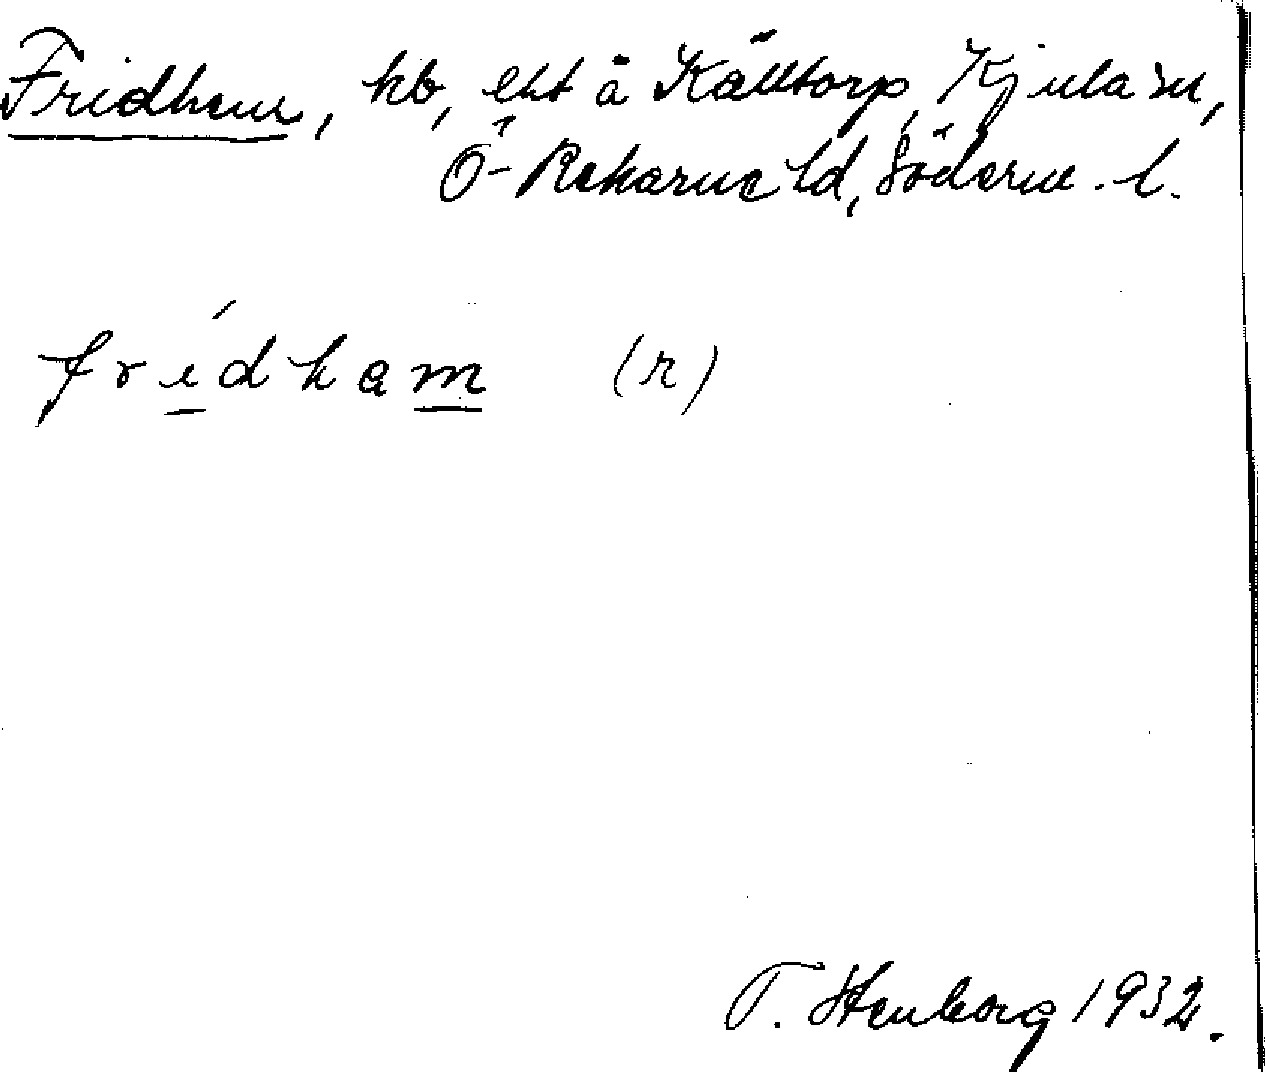 Fridhem, hb, ekt å Källtorp, Kjula sn,
Ö-Rekarne hd, Söderm. l.
frídham (r)
T. Stenborg 1932.